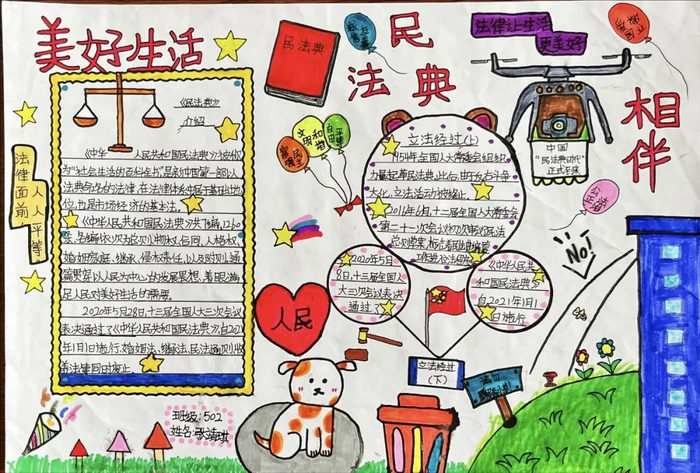 美好生活
民
法典
相
伴
民法典
法律让生活
更美好
法律面前
人人平等
《民法典》
介绍
《中华人民共和国民法典》被称
为"社会生活的百科全书"是新中国第一部以
法典命名的法律,在法律体系中居于基础性地
位,也是市场经济的基本法。
《中华人民共和国民法典》共7编,1260
条,各编依次为总则、物权、合同、人格权、
婚姻家庭、继承、侵权责任,以及附则,通
篇贯穿以人民为中心的发展思想,着眼满
足人民对美好生活的需要。
2020年5月28日,十三届全国人大三次会议
表决通过了《中华人民共和国民法典》自2021
年1月1日施行,婚姻法,继承法,民法通则,收
养法律同时废止。
班级:502
富强
民主
文明
和谐
自由
平等
立法经过(上)
1954年全国人大常委会组织
力量起草民法典,此后
大化,立法活动被终止。
2016年6月,十二届全国人大常委会
第二十一次会议初次审议民法
总则草案,标志着
2020年5月
28日,十三届全国人
大三次会议表决
通过了
《中华人民共
和国民法典》
自2021年1月1
日施行
立法经过
(下)
人民
中国
"民法典时代"
正式到来
NO!